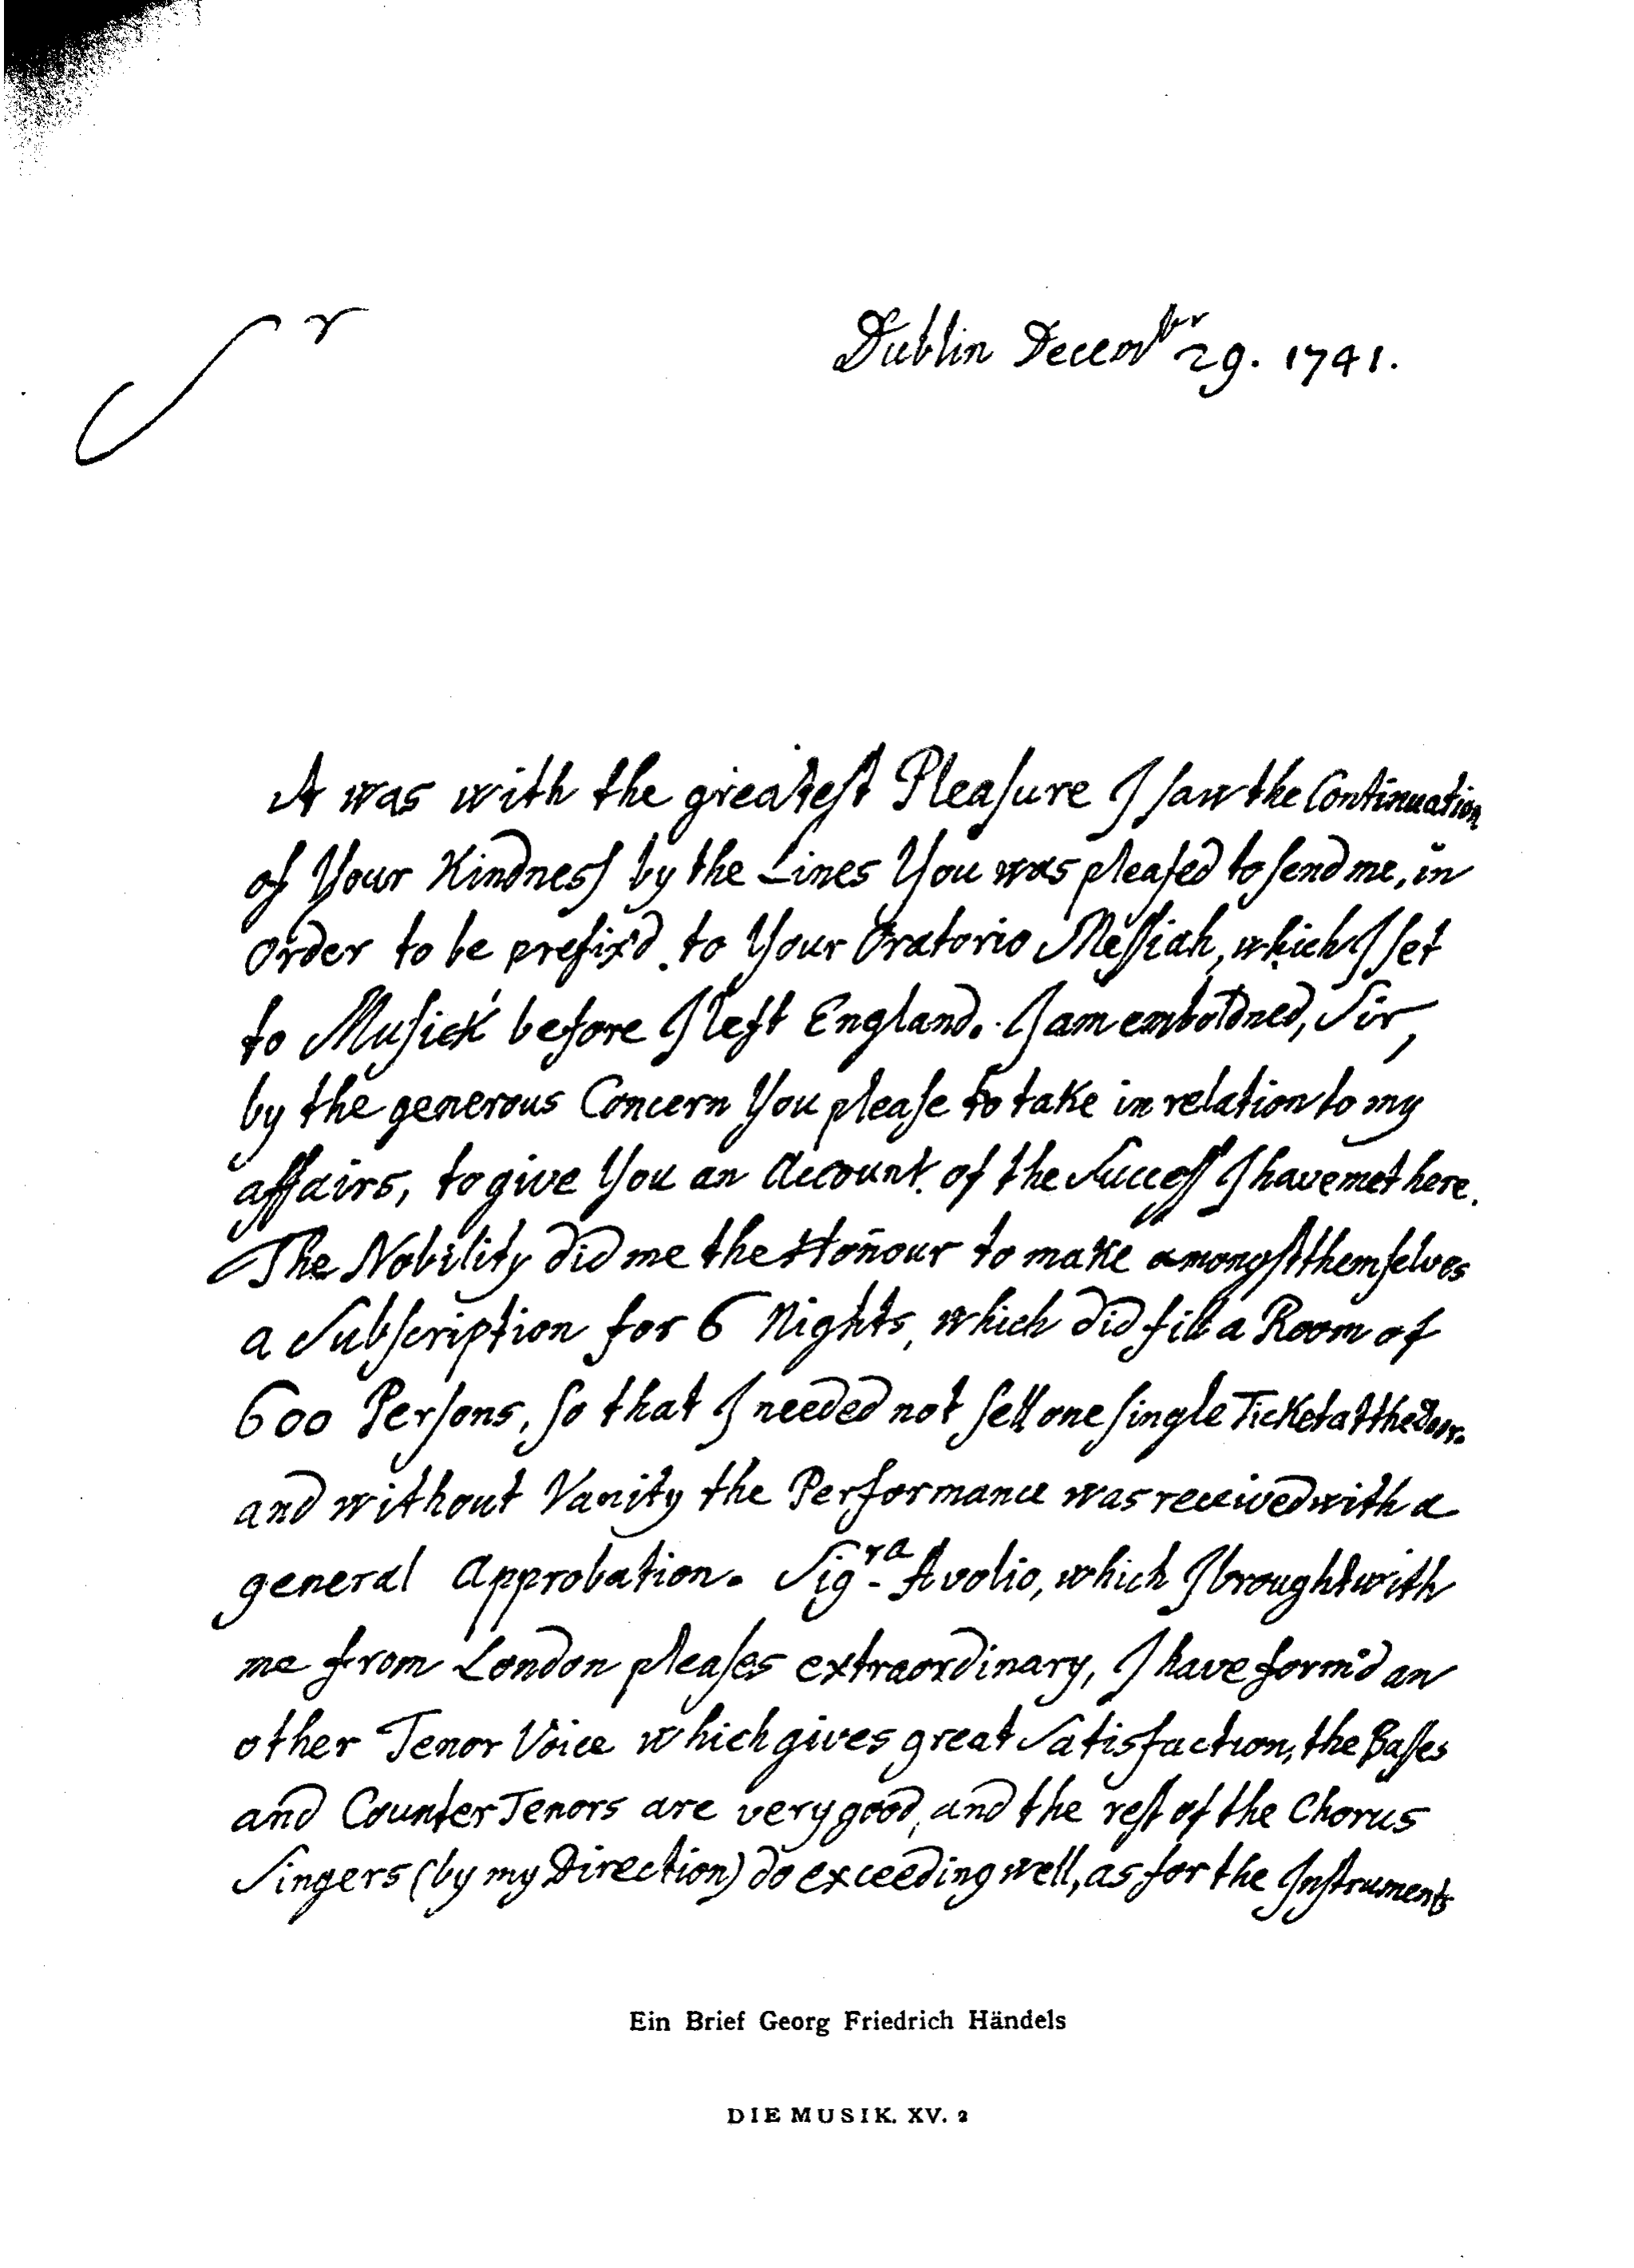 Sr
Dublin Decembr 29. 1741.
It was with the greatest Pleasure I saw the Continuation
of Your Kindness by the Lines You was pleased to send me, in
Order to be prefix'd to Your Oratorio Messiah, which I set
to Musick before I left England. I am emboldned, Sir,
by the generous Concern You please to take in relation to my
affairs, to give You an Account of the Success I have met here.
The Nobility did me the Honour to make amongst themselves
a Subscription for 6 Nights, which did fill a Room of
600 Persons, so that I needed not sell one single Ticket at the Door.
and without Vanity the Performance was received with a
general Approbation. Sigra Avolio, which I brought with
me from London pleases extraordinary, I have form'd an
other Tenor Voice which gives great Satisfaction, the Basses
and Counter Tenors are very good, and the rest of the Chorus
Singers (by my Direction) do exceeding well, as for the Instruments
Ein Brief Georg Friedrich Händels
DIE MUSIK. XV. 2